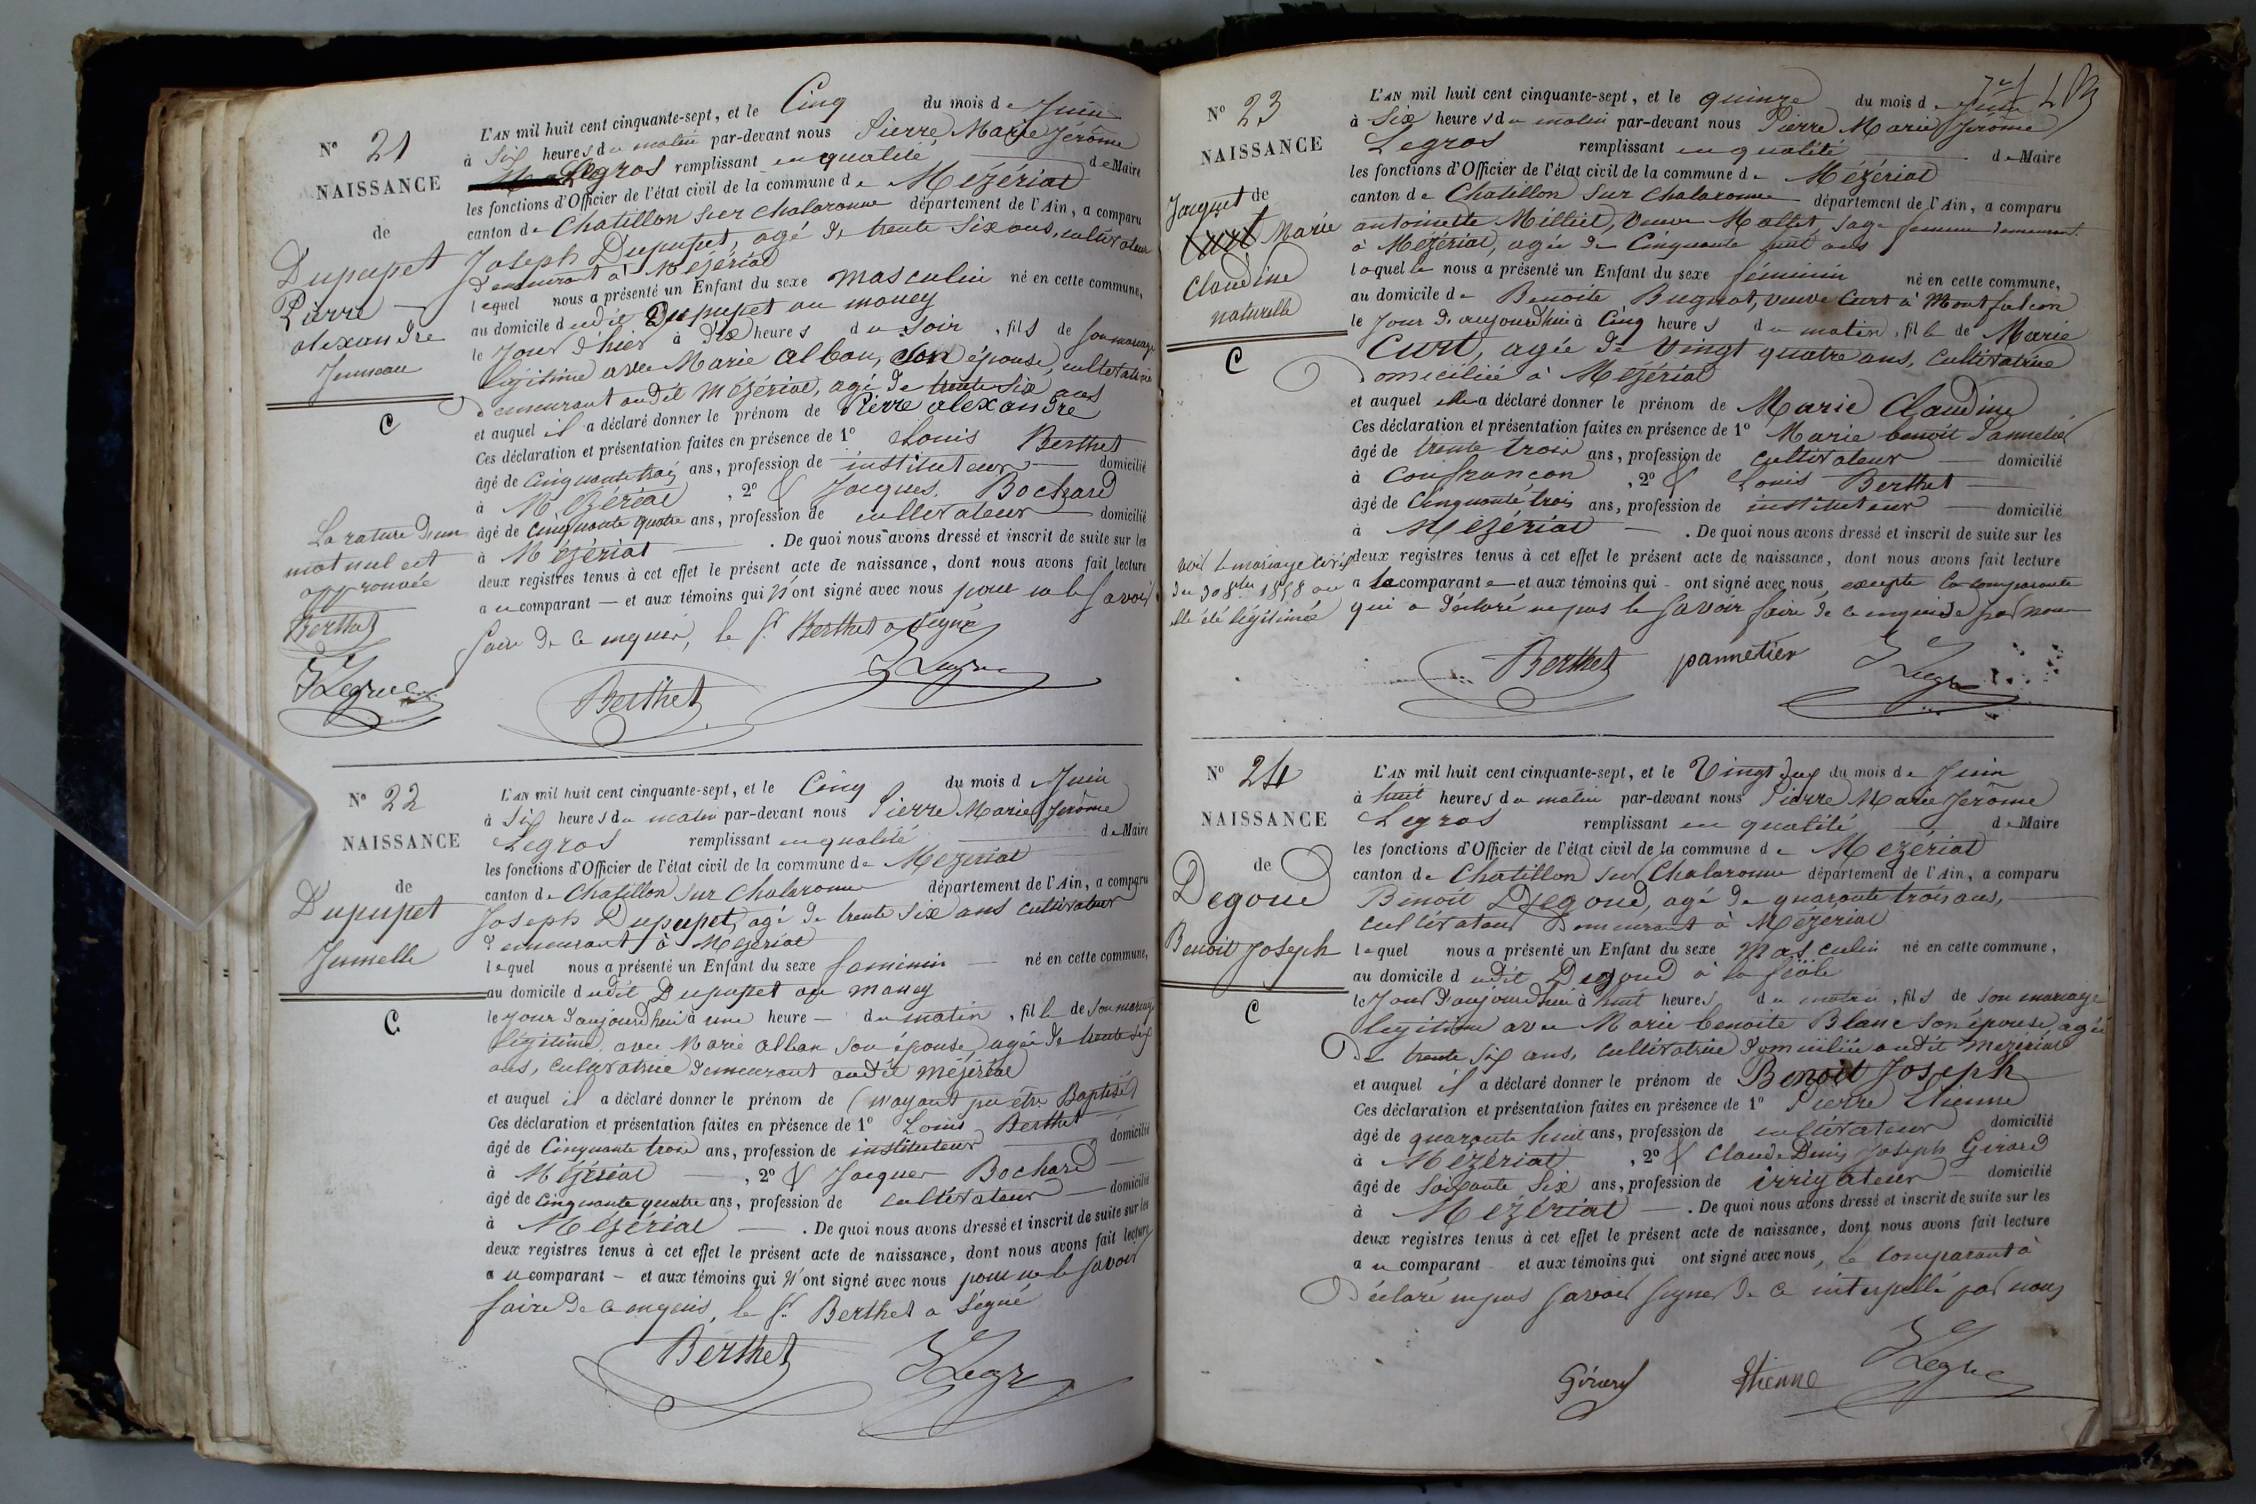 N° 21
NAISSANCE
de
Dupupet
Pierre
alexandre
Jumeau
C
L'AN mil huit cent cinquante-sept, et le Cinq du mois de Juin
à Six heures du matin par-devant nous Pierre Marie Jerôme
Legros remplissant en qualité de Maire
les fonctions d'Officier de l'état civil de la commune de Mézériat
canton de Chatillon sur Chalaronne département de l'Ain, a comparu
Joseph Dupupet, agé de trente six ans, cultivateur
demeurant à Mézériat
lequel nous a présenté un Enfant du sexe masculin né en cette commune,
au domicile dudit Dupupet au mouey
le Jour d'hier à dix heures du soir, fils de son mariage
légitime avec Marie alban, son épouse, cultivatrice
demeurant audit Mézériat, agé de trente six ans
et auquel il a déclaré donner le prénom de Pierre alexandre
Ces déclaration et présentation faites en présence de 1° Louis Berthet
âgé de Cinquante trois ans, profession de instituteur domicilié
à Mézériat, 2° & Jacques Bochard
âgé de cinquante quatre ans, profession de cultivateur domicilié
à Mézériat. De quoi nous avons dressé et inscrit de suite sur les
deux registres tenus à cet effet le présent acte de naissance, dont nous avons fait lecture
au comparant et aux témoins qui n'ont signé avec nous pour ne le savoir
faire de ce enquis, le Sr Berthet a Signé
La rature d'un
mot nul est
approuvée
Berthet
JLegros
Berthet
JLegros
N° 22
NAISSANCE
de
Dupupet
Jumelle
C
L'AN mil huit cent cinquante-sept, et le Cinq du mois de Juin
à Six heures du matin par-devant nous Pierre Marie Jerôme
Legros remplissant en qualité de Maire
les fonctions d'Officier de l'état civil de la commune de Mézériat
canton de Chatillon sur Chalaronne département de l'Ain, a comparu
Joseph Dupupet, agé de trente six ans cultivateur
demeurant à Mézériat
lequel nous a présenté un Enfant du sexe feminin né en cette commune,
au domicile dudit Dupupet au mouey
le jour d'aujourd'hui à une heure du matin, fille de son mariage
légitime avec Marie alban son épouse, agée de trente six
ans, cultivatrice demeurant audit Mézériat
et auquel il a déclaré donner le prénom de (nayant pu être Baptisé)
Ces déclaration et présentation faites en présence de 1° Louis Berthet
âgé de Cinquante trois ans, profession de instituteur domicilié
à Mézériat, 2° & Jacques Bochard
âgé de cinquante quatre ans, profession de cultivateur domicilié
à Mézériat. De quoi nous avons dressé et inscrit de suite sur les
deux registres tenus à cet effet le présent acte de naissance, dont nous avons fait lecture
au comparant et aux témoins qui n'ont signé avec nous pour ne le savoir
faire de ce enquis, le Sr Berthet a Signé
Berthet
JLegros
N° 23
NAISSANCE
de
Jacquet
Curt Marie
Claudine
naturelle
C
L'AN mil huit cent cinquante-sept, et le quinze du mois de Juin
à Six heures du matin par-devant nous Pierre Marie Jérôme
Legros remplissant en qualité de Maire
les fonctions d'Officier de l'état civil de la commune de Mézériat
canton de Chatillon sur Chalaronne département de l'Ain, a comparu
antoinette Milliet, veuve Mallet, sage femme demeurant
à Mézériat, agée de Cinquante huit ans
laquelle nous a présenté un Enfant du sexe féminin né en cette commune,
au domicile de Benoite Bugnot, veuve Curt à Montfalcon
le Jour d'aujourd'hui à Cinq heures du matin, fille de Marie
Curt, agée de Vingt quatre ans, cultivatrice
domiciliée à Mézériat
et auquel elle a déclaré donner le prénom de Marie Claudine
Ces déclaration et présentation faites en présence de 1° Marie benoit Pannetier
âgé de trente trois ans, profession de cultivateur domicilié
à Confrançon, 2° & Louis Berthet
âgé de Cinquante trois ans, profession de instituteur domicilié
à Mézériat. De quoi nous avons dressé et inscrit de suite sur les
deux registres tenus à cet effet le présent acte de naissance, dont nous avons fait lecture
a la comparante et aux témoins qui ont signé avec nous, excepté la comparante
qui a déclaré ne pas le savoir faire de ce enquise par nous
par le mariage
du 30 8bre 1858
elle été légitimée
Berthet pannetier JLegros
N° 24
NAISSANCE
de
Degoud
Benoit Joseph
C
L'AN mil huit cent cinquante-sept, et le Vingt deux du mois de Juin
à huit heures du matin par-devant nous Pierre Marie Jerôme
Legros remplissant en qualité de Maire
les fonctions d'Officier de l'état civil de la commune de Mézériat
canton de Chatillon sur Chalaronne département de l'Ain, a comparu
Benoit Degoud, agé de quarante trois ans,
cultivateur demeurant à Mézériat
lequel nous a présenté un Enfant du sexe Masculin né en cette commune,
au domicile dudit Degoud à la
le Jour d'aujourd'hui à huit heures du matin, fils de son mariage
légitime avec Marie benoite Blanc son épouse, agée
de trente six ans, cultivatrice domiciliée audit Mézériat
et auquel il a déclaré donner le prénom de Benoit Joseph
Ces déclaration et présentation faites en présence de 1° Pierre Etienne
âgé de quarante huit ans, profession de cultivateur domicilié
à Mézériat, 2° & Claude Denis Joseph Girard
âgé de Soixante Six ans, profession de irrigateur domicilié
à Mézériat. De quoi nous avons dressé et inscrit de suite sur les
deux registres tenus à cet effet le présent acte de naissance, dont nous avons fait lecture
au comparant et aux témoins qui ont signé avec nous, le comparant à
déclaré ne pas savoir signer de ce interpellé par nous
Girard Etienne JLegros